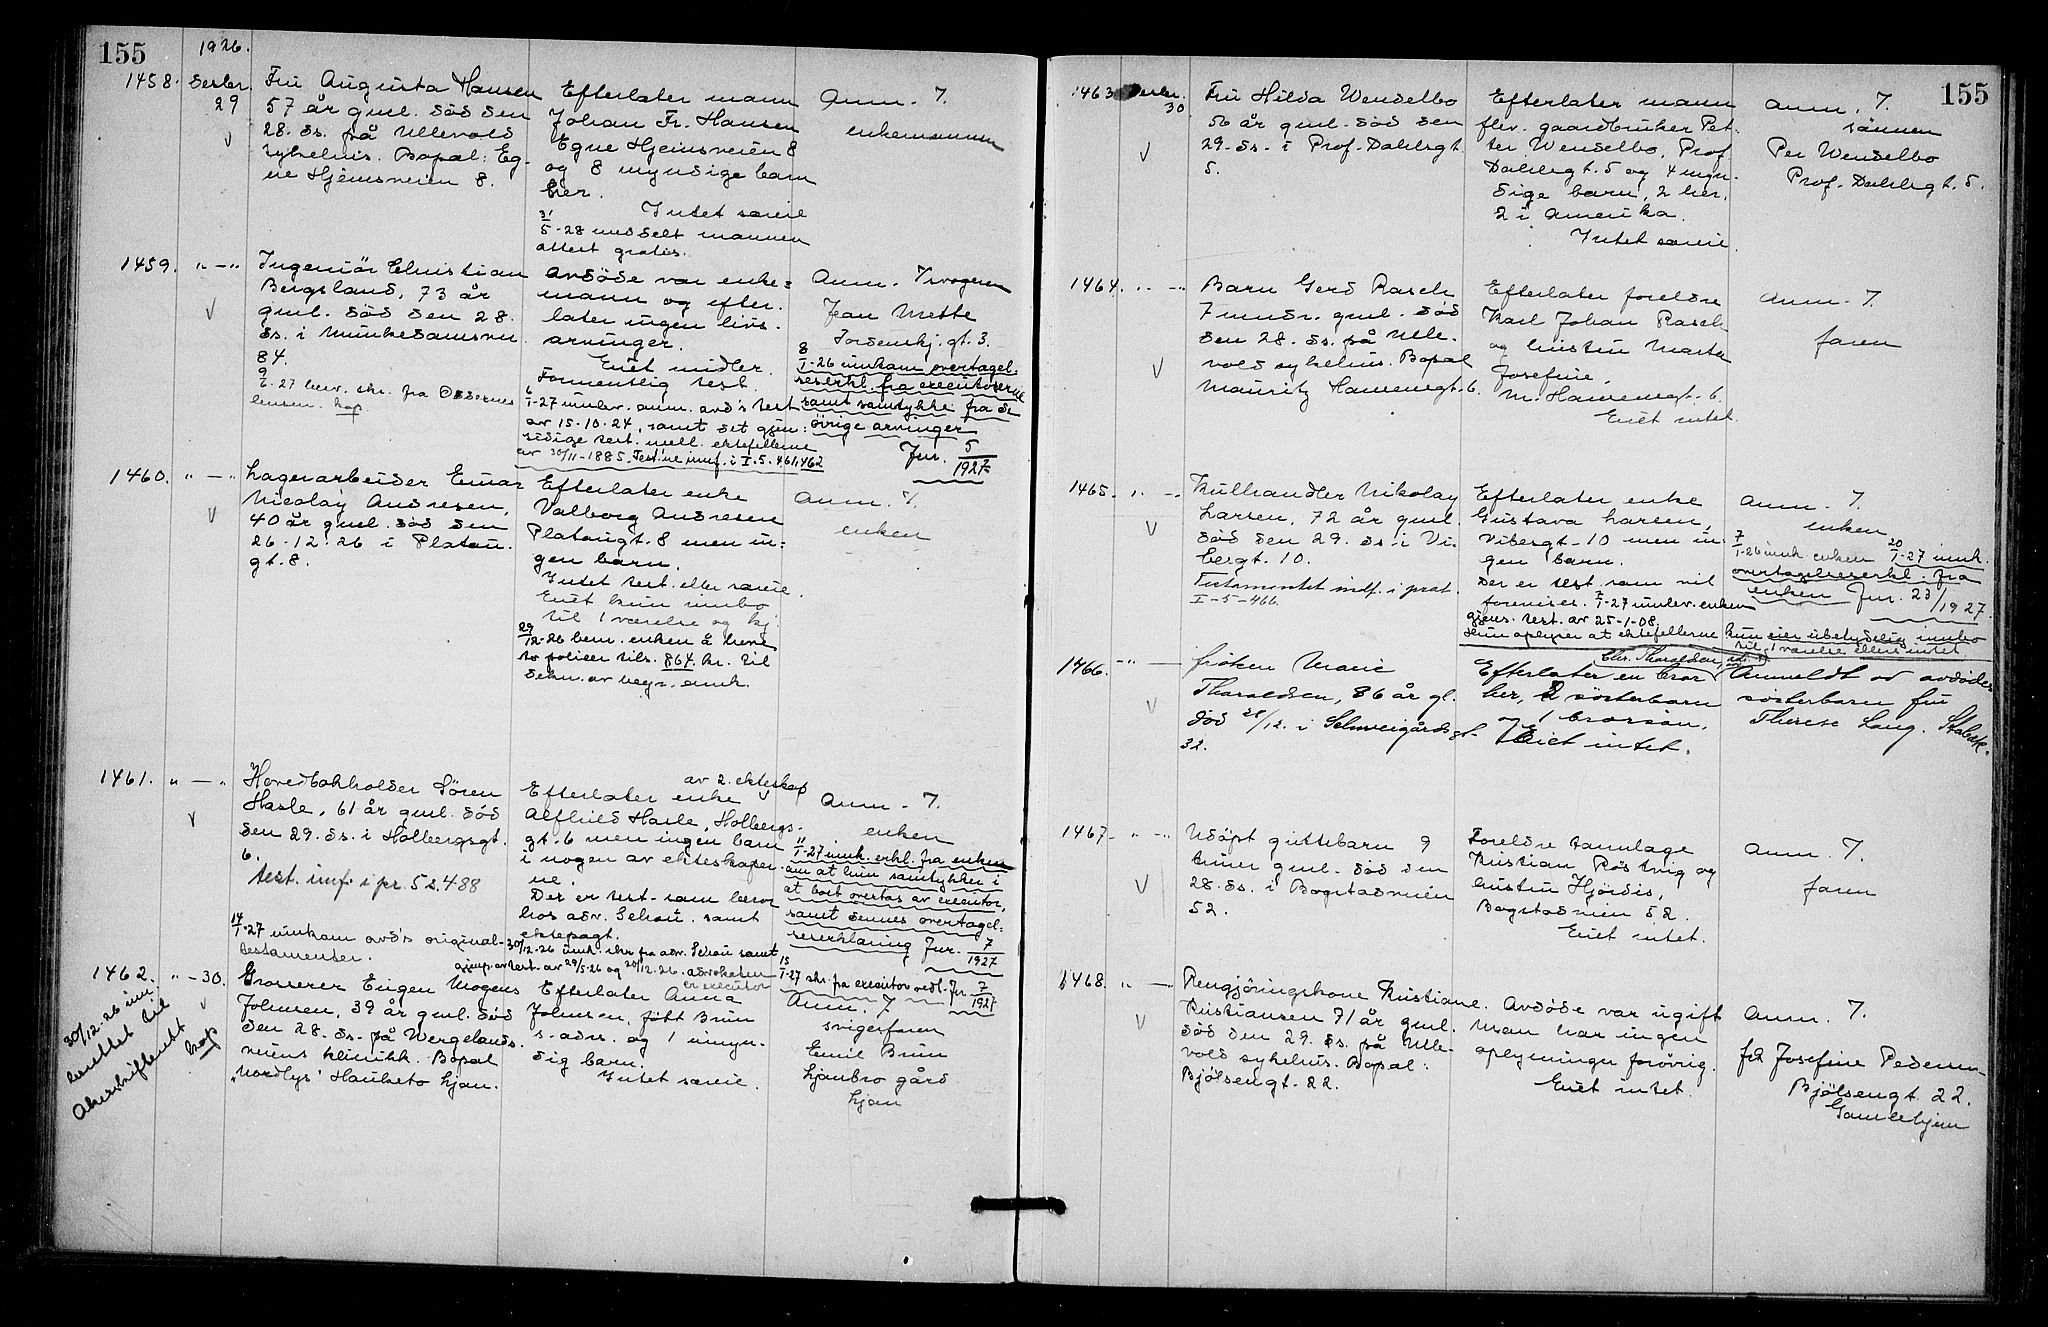 155
1926.
1458. Desbr. 29
Fru Augusta Hansen
57 år gml. død den
28. ds. på Ullevold
sykehus. Bopæl: Eg-
ne Hjemsveien 8.
Efterlater mann
Johan Fr. Hansen
Egne Hjemsveien 8
og 8 myndige barn
her.
Intet særeie
31/5-28 meddelt mannen
attest gratis.
Anm. T.
enkemannen
1459. " — "
Ingeniör Christian
Bergsland, 73 år
gml. död den 28.
ds. i Munkedamsvn.
84.
Avdöde var enke=
mann og efter-
later ingen livs-
arvinger.
Eiet midler.
Formentlig test.
I-27 innlev. anm. avd's test
av 15-10-24, samt det gjen-
sidige test. mell. ektefellerne
av 30/11-1885. Test'ne innf. i I.5.461.462
Anm. T
Jean Mette
Tordenskj. gt. 3.
8/1-26 innkom overtagel-
seserkl. fra executorerne
samt samtykke fra de
övrige arvinger
Jnr. 5/1927
1460. " — "
Lagerarbeider Einar
Nicolay Andresen,
40 år gml. död den
26-12-26 i Platou-
gt. 8.
Efterlater enke
Valborg Andresen
Platougt. 8 men in-
gen barn.
Intet test. eller særeie.
Eiet kun innbo
til 1 værelse og kj.
29/12-26 bem. enken å heve
to policer tils. 864 kr. til
dekn. av begr. omk.
Anm. T.
enken
1461. " — "
Hovedbokholder Sören
Hasle, 61 år gml. död
den 29. ds. i Holbergsgt.
6.
Test. innf. i pr. 5 s. 488
14/1-27 innkom avd's original-
testamenter.
av 2. ekteskap
Efterlater enke
Alfhild Hasle, Holbergs-
gt. 6 men ingen barn
i nogen av ekteskaper-
ne.
Der er test. som beror
hos adv. Schou, samt
ektepagt.
30/12-26 innk. skr fra adv. Schou samt
gjenp. av test. av 29/5-26 og 20/12.26. advokaten
er executor
Anm. T.
enken
11/1-27 innk. erkl. fra enken
om at hun samtykker i
at boet overtas av executor,
samt dennes overtagel-
seserklæring Jnr. 7/1927
15/1-27 skr. fra executor vedl. Jnr. 7/1927
1462. " — 30.
30/12-26 inn-
berettet til
Skifterett
kop
Grosserer Eugen Mogens
Johnsen, 39 år gml. död
den 28. ds. på Wergelands-
veiens klinikk. Bopæl
"Nordlys" Hauketo Ljan.
Efterlater Anna
Johnsen, född Brun
s. adr. og 1 umyn-
dig barn.
Intet særeie.
Anm. T
svigerfaren
Emil Brun
Ljanbro gård
Ljan
155
1463 Desbr. 30
Fru Hilda Wendelbo
56 år gml. död den
29. ds. i Prof. Dahlsgt.
5.
Efterlater mann
fhv. gaardbruker Pet-
ter Wendelbo, Prof.
Dahlsgt. 5 og 4 myn-
dige barn, 2 her,
2 i Amerika.
Intet særeie.
Anm. T.
sönnen
Per Wendelbo
Prof. Dahlsgt. 5.
1464. " — "
Barn Gerd Rasch
7 mndr. gml. död
den 28. ds. på Ulle-
vold sykehus. Bopæl
Mauritz Hansensgt. 6.
Efterlater foreldre
Karl Johan Rasch
og hustru Marta
Josefine,
M. Hansensgt. 6.
Eiet intet.
Anm. T.
faren
1465. " — "
Kullhandler Nikolay
Larsen, 72 år gml.
död den 29. ds. i Vi-
bergt. 10.
Testamentet indf. i prot.
I-5-466.
Efterlater enke
Gustava Larsen,
Vibesgt. 10 men in-
gen barn.
Der er test. som vil
forevises. 7/1-27 innlev. enken
gjens. test. av 25-1-08.
Hun oplyser at ektefellerne kun eier ubetydelig innbo
til 1 værelse ellers intet
Anm. T.
enken
7/1-26 innk. enken
20/1-27 innk.
overtagelseserkl. fra
enken Jnr. 23/1927.
1466. " —
Fröken Marie
Tharaldsen, 86 år gl.
död 28/12. i Schweigårdsgt.
32.
Chr. Tharaldsen,
Efterlater en bror
her, 2 sösterbarn
og 1 brorsön,
Eiet intet.
Anmeldt av avdödes
sösterbarn fru
Therese Lang. Stabæk.
1467. " — "
Udöpt guttebarn 9
timer gml. död den
28. ds. i Bogstadveien
52.
Foreldre tannlæge
Kristian Röstvig og
hustru Hjördis,
Bogstadveien 52.
Eiet intet.
Anm. T.
faren
1468. " — "
Rengjöringskone Kristiane
Kristiansen 71 år gml.
död den 29. ds. på Ulle-
vold sykehus. Bopæl:
Bjölsengt. 22.
Avdöde var ugift
Man har ingen
oplysninger forövrig.
Eiet intet.
Anm. T.
frk Josefine Pedersen
Bjölsengt. 22.
Gamlehjem